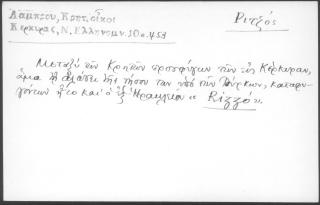 Λάμπρου, Κρητ. οἶκοι
Κερκύρας, Ν. Ἑλληνομν. 10ος. 453
Ριτζός
Μεταξὺ τῶν Κρητῶν προσφύγων τῶν εἰς Κέρκυραν,
ἅμα τῇ ἁλώσει τῆς νήσου των ὑπὸ τῶν Τούρκων, καταφυ-
γόντων ἦτο καὶ ὁ ἐξ Ἡρακλείου « Rizzo ».